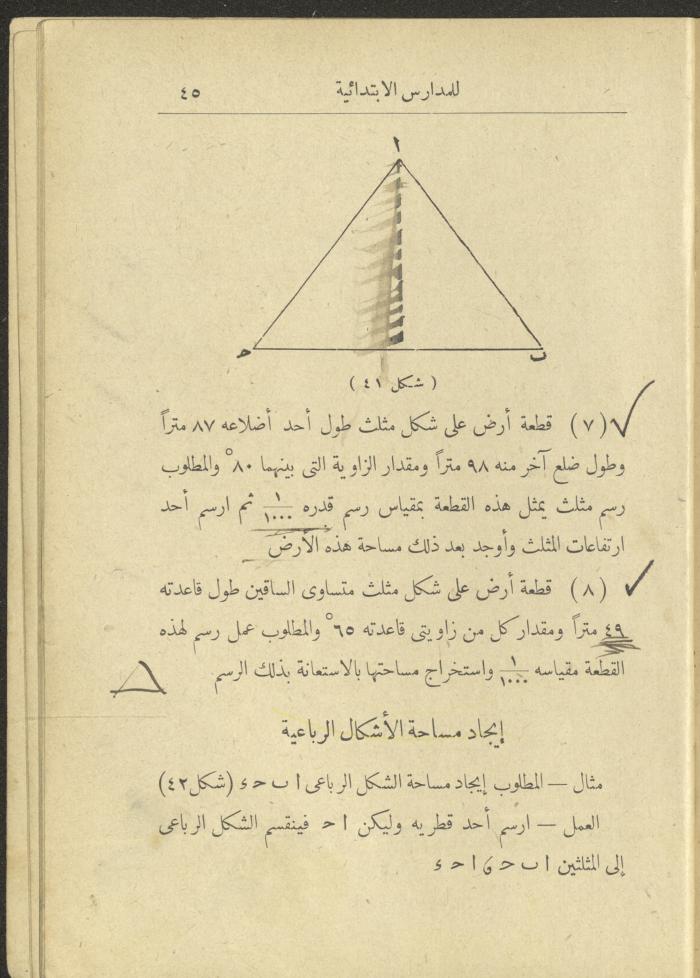 للمدارس الابتدائية ٤٥
ا
ح ب
( شكل ٤١ )
( ٧ ) قطعة أرض على شكل مثلث طول أحد أضلاعه ٨٧ متراً
وطول ضلع آخر منه ٩٨ متراً ومقدار الزاوية التى بينهما ٨٠° والمطلوب
رسم مثلث يمثل هذه القطعة بمقياس رسم قدره ١/١٠٠٠ ثم ارسم أحد
ارتفاعات المثلث وأوجد بعد ذلك مساحة هذه الأرض
( ٨ ) قطعة أرض على شكل مثلث متساوى الساقين طول قاعدته
٤٩ متراً ومقدار كل من زاويتى قاعدته ٦٥° والمطلوب عمل رسم لهذه
القطعة مقياسه ١/١٠٠٠ واستخراج مساحتها بالاستعانة بذلك الرسم
إيجاد مساحة الأشكال الرباعية
مثال — المطلوب إيجاد مساحة الشكل الرباعى ا ب ح ء (شكل ٤٢)
العمل — ارسم أحد قطريه وليكن ا ح فينقسم الشكل الرباعى
إلى المثلثين ا ب ح ، ا ح ء